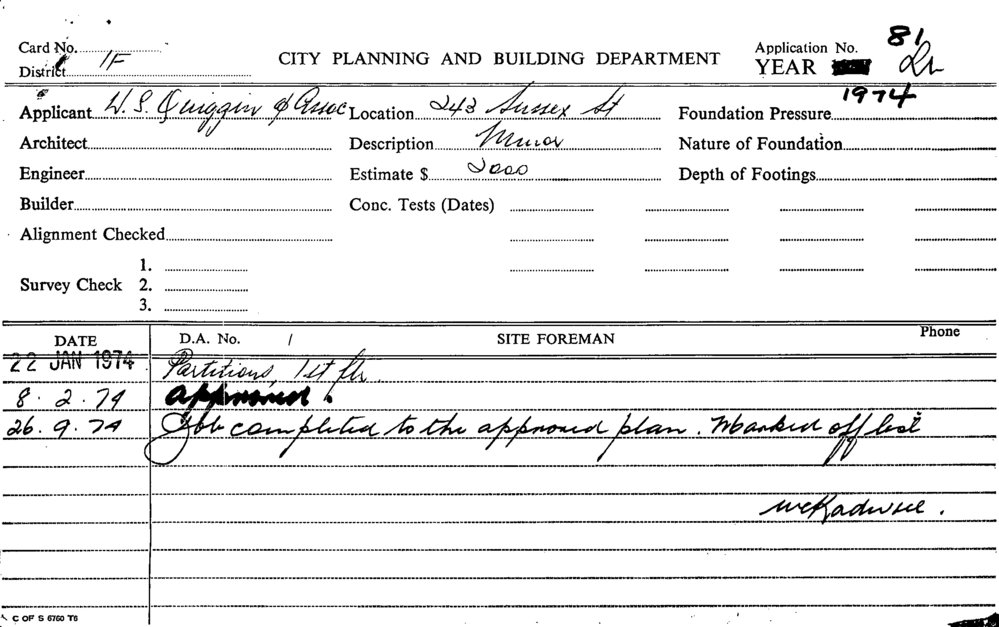 Card No.
District 1F
CITY PLANNING AND BUILDING DEPARTMENT
Application No. 81
YEAR 1974
Applicant W. S. Quiggin & Assoc Location 243 Sussex St Foundation Pressure
Architect Description Minor Nature of Foundation
Engineer Estimate $ 2000 Depth of Footings
Builder Conc. Tests (Dates)
Alignment Checked
Survey Check 1.
2.
3.
DATE D.A. No. / SITE FOREMAN Phone
22 JAN 1974 Partitions, 1st flr.
8.2.74 Approved
26.9.74 Job completed to the approved plan. Marked off list
C OF S 6760 T6